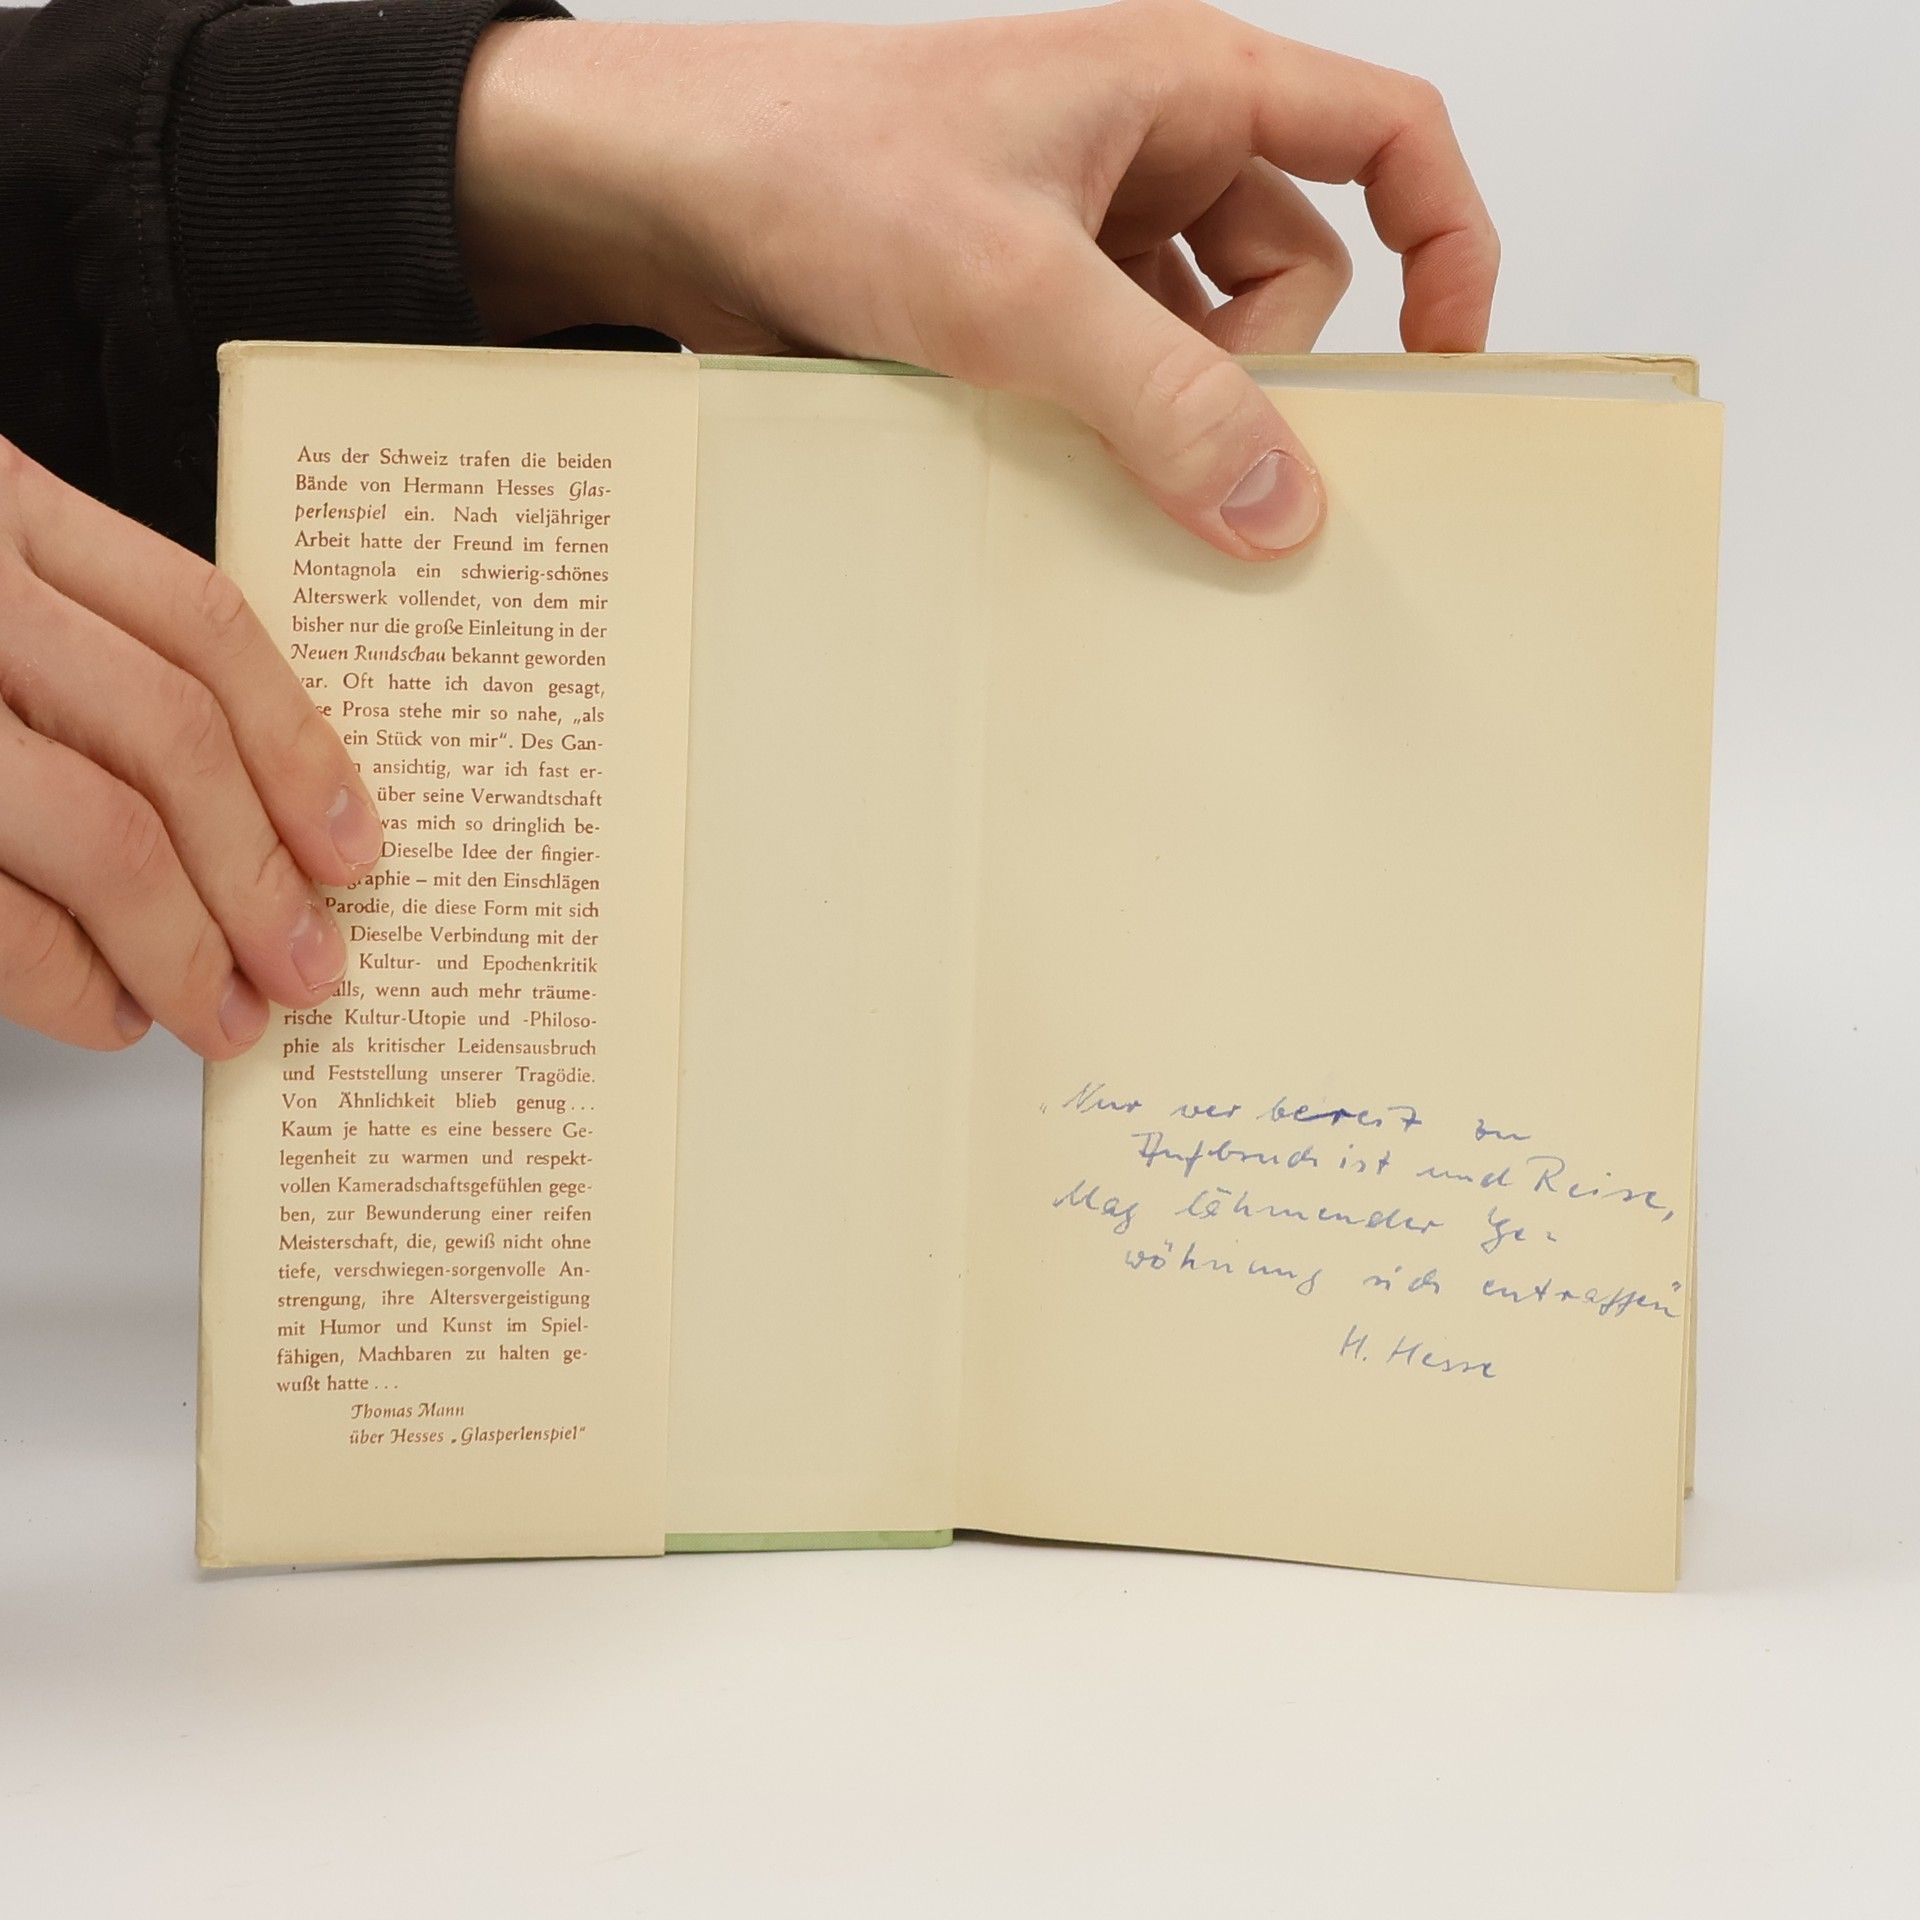 Aus der Schweiz trafen die beiden
Bände von Hermann Hesses Glas-
perlenspiel ein. Nach vieljähriger
Arbeit hatte der Freund im fernen
Montagnola ein schwierig-schönes
Alterswerk vollendet, von dem mir
bisher nur die große Einleitung in der
Neuen Rundschau bekannt geworden
war. Oft hatte ich davon gesagt,
Prosa stehe mir so nahe, „als
ein Stück von mir“. Des Gan-
ansichtig, war ich fast er-
über seine Verwandtschaft
was mich so dringlich be-
Dieselbe Idee der fingier-
graphie – mit den Einschlägen
Parodie, die diese Form mit sich
Dieselbe Verbindung mit der
Kultur- und Epochenkritik
alls, wenn auch mehr träume-
rische Kultur-Utopie und -Philoso-
phie als kritischer Leidensausbruch
und Feststellung unserer Tragödie.
Von Ähnlichkeit blieb genug...
Kaum je hatte es eine bessere Ge-
legenheit zu warmen und respekt-
vollen Kameradschaftsgefühlen gege-
ben, zur Bewunderung einer reifen
Meisterschaft, die, gewiß nicht ohne
tiefe, verschwiegen-sorgenvolle An-
strengung, ihre Altersvergeistigung
mit Humor und Kunst im Spiel-
fähigen, Machbaren zu halten ge-
wußt hatte...
Thomas Mann
über Hesses „Glasperlenspiel“
„Nur wer bereit zu
Aufbruch ist und Reise,
Mag lähmender Ge-
wöhnung sich entraffen"
H. Hesse